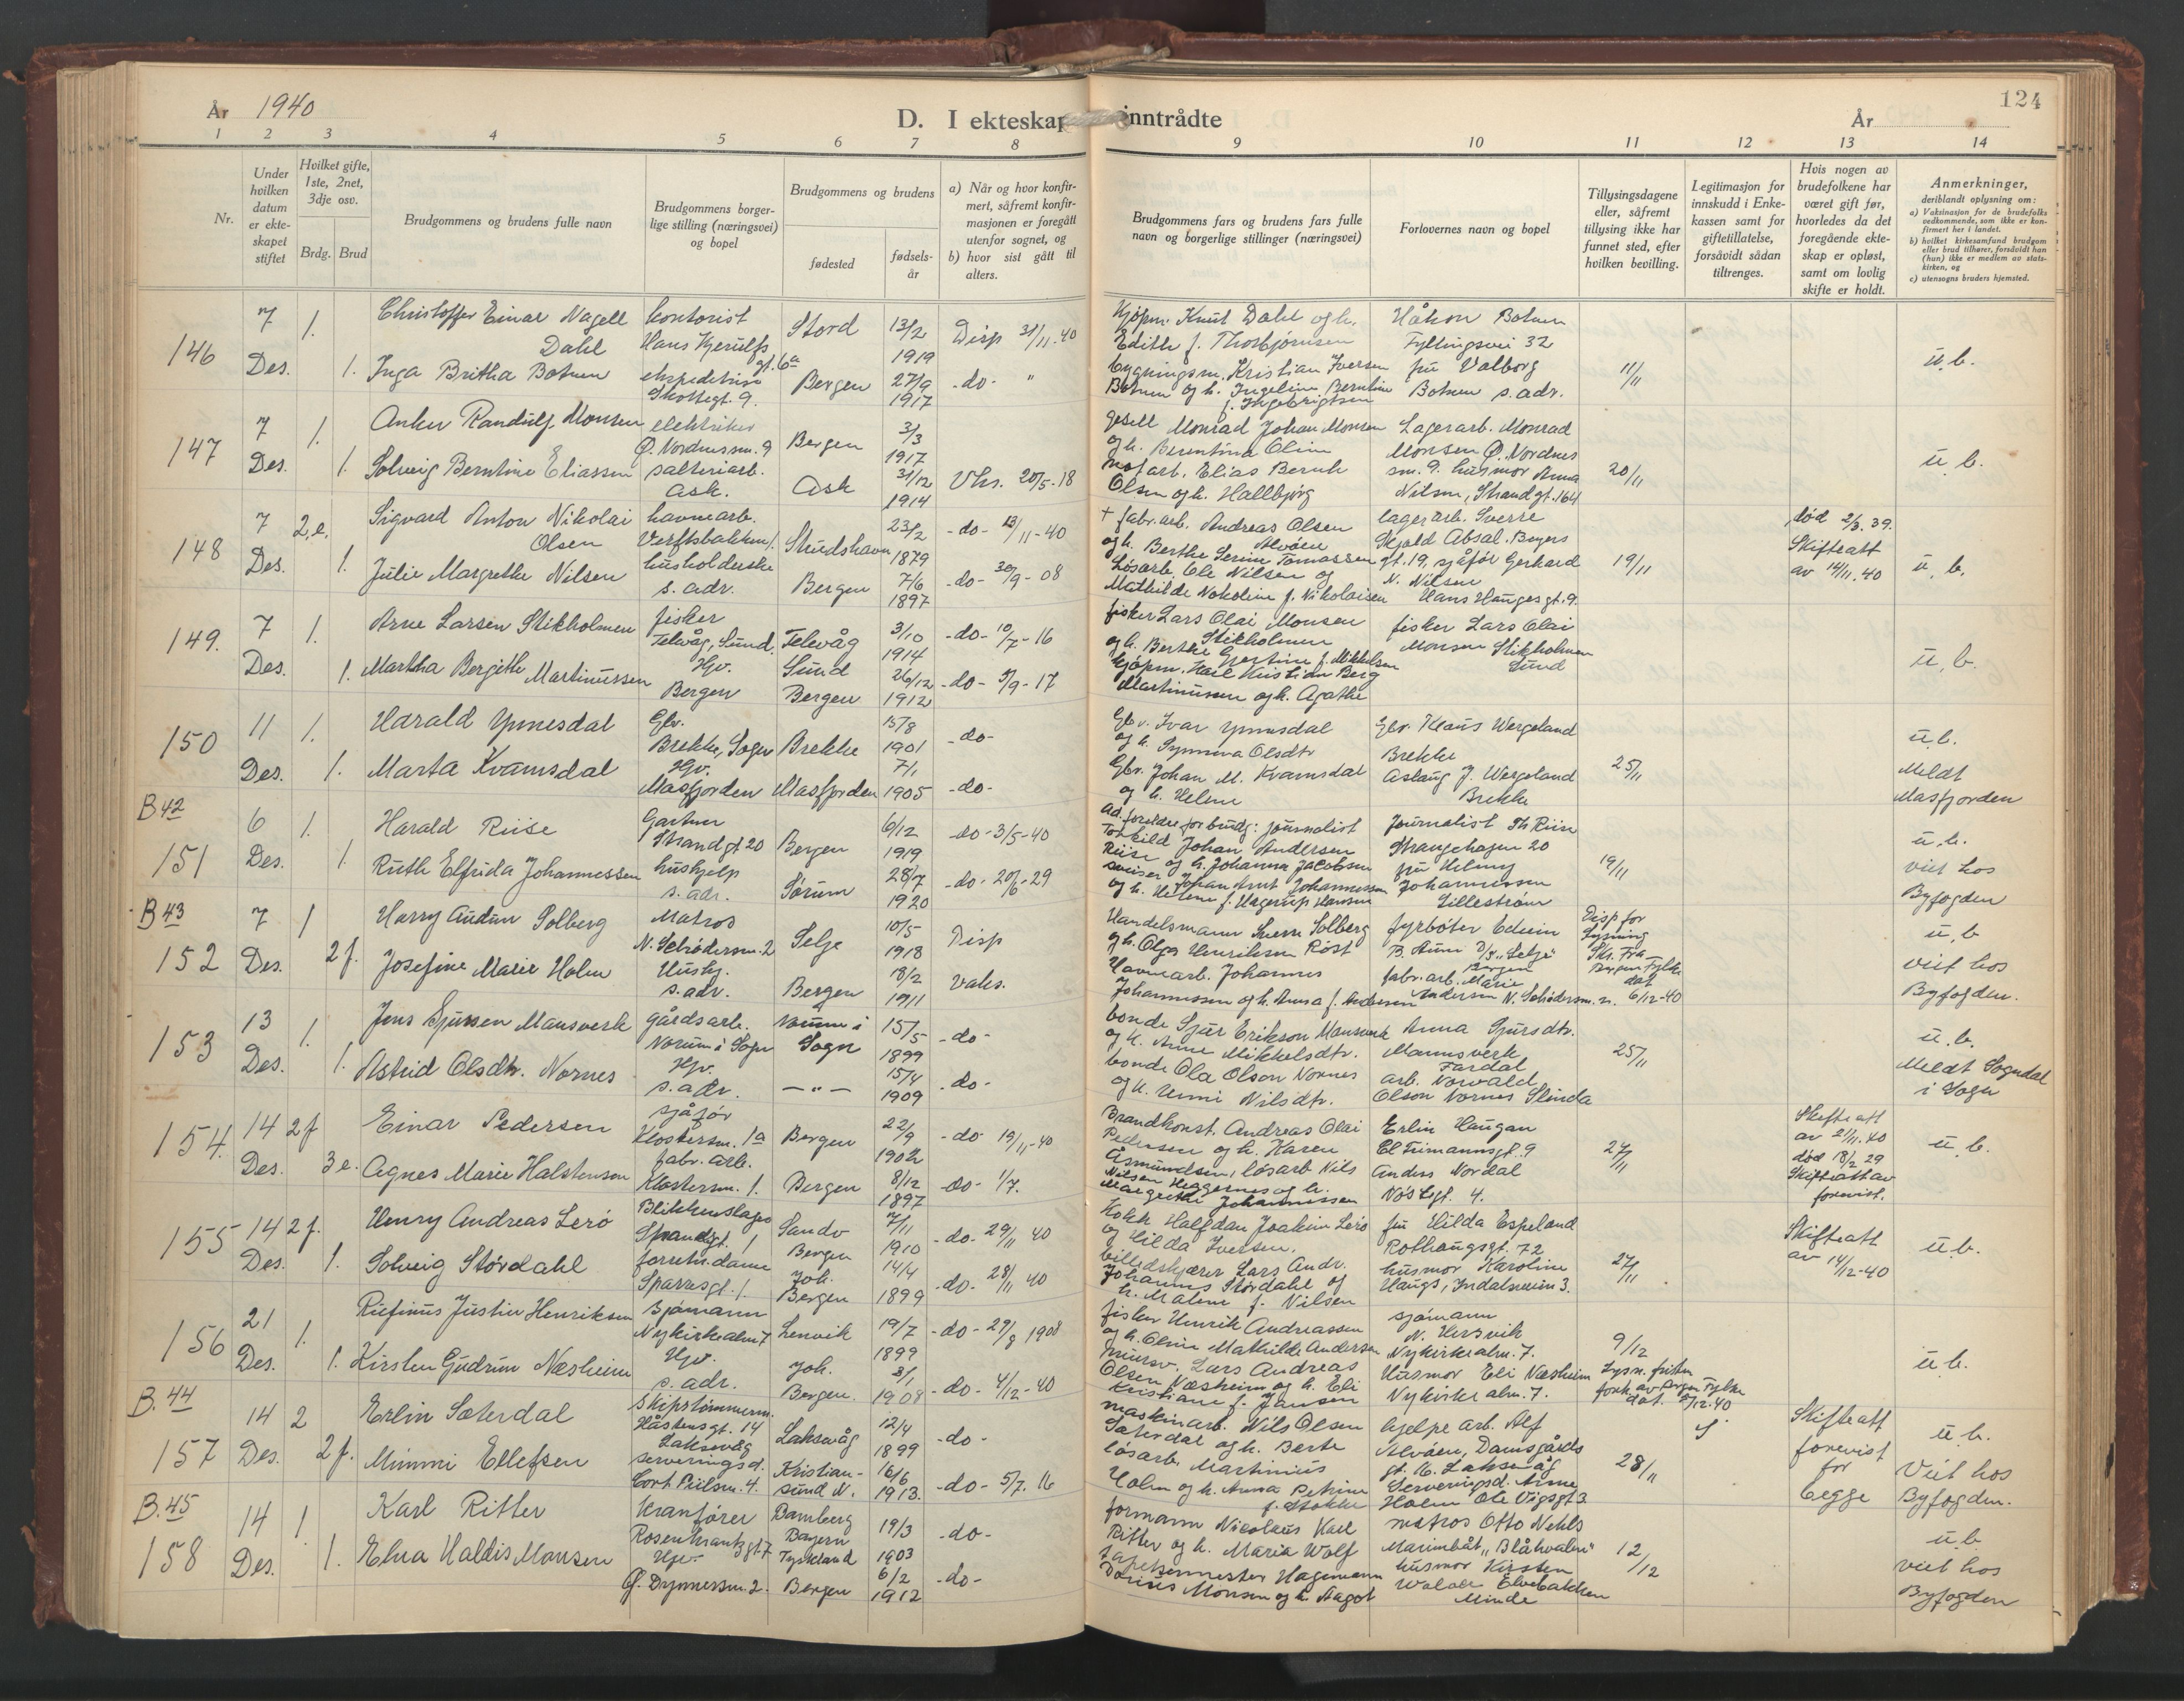 År 1940
D. I ekteskap inntrådte
År
124
1 2 3 4 5 6 7 8 9 10 11 12 13 14
Nr.
Under hvilken datum er ekteskapet stiftet
Hvilket gifte, 1ste, 2net, 3dje osv.
Brdg. Brud
Brudgommens og brudens fulle navn
Brudgommens borgerlige stilling (næringsvei) og bopel
Brudgommens og brudens
fødested
fødselsår
a) Når og hvor konfirmert, såfremt konfirmasjonen er foregått utenfor sognet, og
b) hvor sist gått til alters.
Brudgommens fars og brudens fars fulle navn og borgerlige stillinger (næringsvei)
Forlovernes navn og bopel
Tillysingsdagene eller, såfremt tillysing ikke har funnet sted, efter hvilken bevilling.
Legitimasjon for innskudd i Enkekassen samt for giftetillatelse, forsåvidt sådan tiltrenges.
Hvis nogen av brudefolkene har været gift før, hvorledes da det foregående ekteskap er opløst, samt om lovlig skifte er holdt.
Anmerkninger, deriblandt oplysning om:
a) Vaksinasjon for de brudefolks vedkommende, som ikke er konfirmert her i landet.
b) hvilket kirkesamfund brudgom eller brud tilhører, forsåvidt han (hun) ikke er medlem av statskirken, og
c) utensogns bruders hjemsted.
146 7 Des. 1. Christoffer Einar Nagell Dahl kontorist Hans Kjerulfs gt. 6a Stord 13/2 1919 Disp 31/11.40 Kjøpm. Knut Dahl og h. Edith f. Thorbjørnsen Håkon Botnen Fyllingsvei 32 ü.b.
1. Inga Britha Botnen ekspeditrise Skottegt. 9. Bergen 27/9 1917 -do- " bygningsm. Kristian Iversen Botnen og h. Ingeline Berntine f. Ingebrigtsen frü Valborg Botnen s. adr. 11/11
147 7 Des. 1. Anker Randulf Monsen elektriker Ø. Nordnessm. 9 Bergen 3/3 1917 gesell Monrad Johan Monsen og h. Berentina Oline Lagerarb. Monrad Monsen Ø. Nordnes sm. 9. 20/11 ü.b.
1. Solveig Berntine Eliassen salteriarb. Ask. Ask 31/12 1914 Vks. 20/5-18 Elias Bernh Olsen og h. Hallbjørg husmor Anna Nilsen, Strandgt. 164
148 7 Des. 2.e. Sigvard Anton Nikolai Olsen havnearb. Verftsbakken 1. 23/2 1879 -do- 13/11-40 + fabr. arb. Andreas Olsen Alvøen og h. Berthe Serine Tomassen lagerarb. Sverre Skjold Absal. Beyers gt. 19, 19/11 død 2/3. 39. Skifteatt av 14/11. 40 ü.b.
1. Julie Margrethe Nilsen husholderske s. adr. Bergen 7/6 1897 -do- 30/9-08 Løsarb. Ole Nilsen og Mathilde Nokoline f. Nikolaisen sjåfør Gerhard N. Nilsen Hans Hauges gt. 9.
149. 7 Des. 1. Arne Larsen Stikholmen fisker Telvåg, Sund. Televåg Sund 3/10 1914 -do- 10/7-16 fisker Lars Olai Monsen Stikholmen og h. Berthe f. Mikkelsen fisker Lars Olai Monsen Stikholmen Sund ü.b.
1. Martha Bergithe Martinussen Hjv. Bergen Bergen 26/12 1912 -do- 9/9-17 kjøpm. Karl Kristian Berg Martinussen og h. Agathe
150 11 Des. 1. Harald Ynnesdal Gbr. Brekke, Sogn Brekke 15/8 1901 -do- Gbr. Ivar Ynnesdal og h. Synneva Olsdtr Gbr. Klaus Wergeland Brekke 25/11 ü.b. Meldt Masfjorden
1. Marta Kvamsdal Hjv. Masfjorden Masfjorden 7/1 1905 -do- Gbr. Johan M. Kvamsdal og h. Helene Aslaug J. Wergeland Brekke
B 42
151 6 Des. 1. Harald Riise Gartner Strandgt 20 Bergen 6/12 1919 -do- 3/5-40 Ad. foreldre for brudg: journalist Torkild Johan Andersen Riise og h. Johanna Jacobsen Journalist Th Riise Strangehagen 20 19/11 ü.b. viet hos Byfogden
1. Ruth Elfrida Johannessen hushjelp s. adr. Sørum 28/7 1920 -do- 20/6-29 sveiser Johan Arnt Johannessen og h. Helene f. Hagerup Hansen frü Helmy Johannessen Lillestrøm
B 43
152 7 Des. 1 Harry Audun Solberg Matros N. Schrödersm. 2 Selje 10/5 1918 Disp Handelsmann Sverre Solberg og h. Olga Henriksen Røst fyrbøter Edvin B. Aune D/S "Selje" Bergen Disp for lysning Skr. Fra Bergen Fylke dat 6/12-40 ü.b. viet hos Byfogden.
2 f. Josefine Marie Holm Hüshj. s. adr. Bergen 18/2 1911 Vaks. Havnearb. Johannes Johannessen og h. Anna f. Andersen fabr. arb. Marie Andersen N. Schødersm. 2.
153 13 Des. 1. Jens Sjursen Mansverk gårdsarb. Norum i Sogn Norum i Sogn 15/5 1899 -do- bonde Sjur Erikson Mansverk og h. Anne Mikkelsdtr. Anna Sjursdtr. Mannsverk Fardal 25/11 ü.b. Meldt Sogndal i Sogn
1. Astrid Olsdtr. Nornes Hjv. s. adr. —"— 15/4 1909 -do- bonde Ola Olson Nornes og h. Unni Nilsdtr. arb. Norvald Olson Nornes Slinda
154. 14 Des. 2 f Einar Pedersen sjåfør Klostersm. 1a Bergen 22/9 1902 -do- 19/11-40 Brandkonst. Andreas Olai Pedersen og h. Karen Åsmundsen, Erlin Haugan 27/11 Skifteatt av 21/11.40 død 18/2 29 Skifteatt av forevist. ü.b.
3 e. Agnes Marie Halstensen fabr. arb. Klostersm. 1. Bergen 8/12 1897 -do- 1/7. løsarb Nils Nilsen Haggernes og h. Margrethe Johannessen Anders Nordal Nøstegt. 4.
155 14 Des. 2 f. Henry Andreas Lerø Blikkenslager Strandgt. 1 Sandv Bergen 7/11 1910 -do- 29/11 40 Kokk Halfdan Joakim Lerø og Hilda Iversen. frü Hilda Espeland Rothaugsgt. 72 27/11 Skifteatt av 14/12-40 ü.b.
1. Solveig Størdahl forretn. dame Sparresgt. 1. Joh. Bergen 14/4 1899 -do- 28/11 40 billedskjærer Lars Andr. Johannes Størdahl og h. Malene f. Nilsen husmor Karoline Haugs, Indalsveien 3.
156 21 Des. 1. Rufinus Justin Henriksen Sjømann Nykirkealm. 7 Lenvik 19/7 1899 -do- 29/8 1908 fisker Henrik Andreassen og h. Oline Mathilde Andersen sjømann N. Hersvik Nykirkealm. 7. 9/12 ü.b.
1. Kirsten Gudrun Næsheim Hjv. s. adr. Joh. Bergen. 3/1 1908 -do- 4/12-40 mürsv. Lars Andreas Olsen Næsheim og h. Eli Kristiane f. Jansen Husmor Eli Næsheim Nykirkealm. 7. Lysn. fristen fork. av Bergen Fylke dat. 12-40
B. 44
157 14 Des. 2 Erlin Sæterdal Skipstømmerm. Håstensgt. 14 Laksevåg Laksevåg 12/4 1899 -do- maskinarb. Nils Olsen Sæterdal og h. Berte hjelpe arb. Alf Alvøen, Damsgårds gt. 16. Laksevåg 28/11 Skifteatt forevist for begge ü.b. Viet hos Byfogden.
2 f. Mimmi Ellefsen serveringsd. Cort Piilsm. 4. Kristiansund N. 16/6 1913. -do- 5/7. 16 løsarb. Martinius Holm og h. Anna Petrine f. Stokke Serveringsd. Arne Holm Ole Vigsgt 3
B. 45
158 14 Des. 1 Karl Ritter Kranfører Rosenkrantzgt. 7 Bamberg Bayern Tyskland 19/3 1903 -do- formann Nicolaus Karl Ritter og h. Maria Wolf matros Otto Nehls Marinebåt "Blåhvalen" 12/12 ü.b viet hos Byfogden
1. Elna Haldis Monsen Hjv. Ø. Dynnersm. 2. Bergen 6/2 1912 -do- Tapetsermester Hagemann Monsen og h. Aagot husmor Kirsten Elvebakken Minde